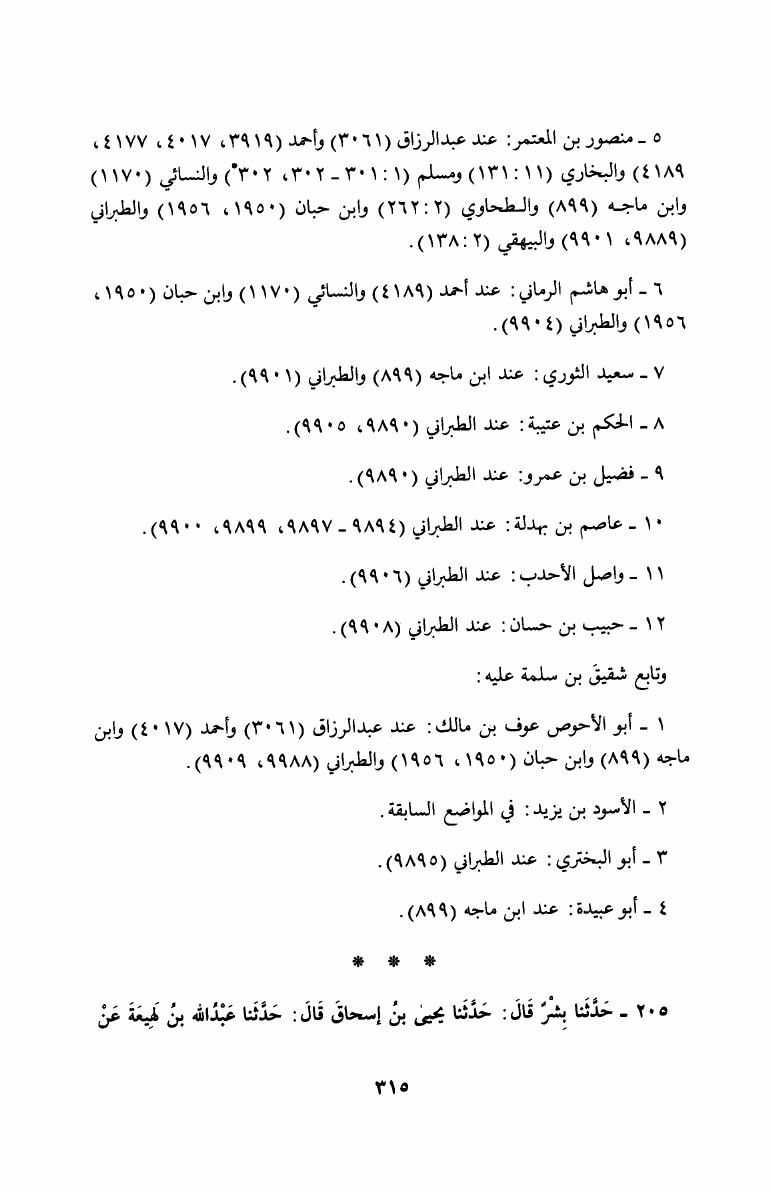 ٥ ـ منصور بن المعتمر: عند عبدالرزاق (٣٠٦١) وأحمد (٣٩١٩، ٤٠١٧، ٤١٧٧،
٤١٨٩) والبخاري (١١: ١٣١) ومسلم (١: ٣٠١ ـ ٣٠٢، ٣٠٢*) والنسائي (١١٧٠)
وابن ماجـه (٨٩٩) والـطحاوي (٢: ٢٦٢) وابن حبان (١٩٥٠، ١٩٥٦) والطبراني
(٩٨٨٩، ٩٩٠١) والبيهقي (٢: ١٣٨).
٦ ـ أبو هاشم الرماني: عند أحمد (٤١٨٩) والنسائي (١١٧٠) وابن حبان (١٩٥٠،
١٩٥٦) والطبراني (٩٩٠٤).
٧ ـ سعيد الثوري: عند ابن ماجه (٨٩٩) والطبراني (٩٩٠١).
٨ ـ الحكم بن عتيبة: عند الطبراني (٩٨٩٠، ٩٩٠٥).
٩ ـ فضيل بن عمرو: عند الطبراني (٩٨٩٠).
١٠ ـ عاصم بن بهدلة: عند الطبراني (٩٨٩٤ ـ ٩٨٩٧، ٩٨٩٩، ٩٩٠٠).
١١ ـ واصل الأحدب: عند الطبراني (٩٩٠٦).
١٢ ـ حبيب بن حسان: عند الطبراني (٩٩٠٨).
وتابع شقيقَ بن سلمة عليه:
١ ـ أبو الأحوص عوف بن مالك: عند عبدالرزاق (٣٠٦١) وأحمد (٤٠١٧) وابن
ماجه (٨٩٩) وابن حبان (١٩٥٠، ١٩٥٦) والطبراني (٩٩٨٨، ٩٩٠٩).
٢ ـ الأسود بن يزيد: في المواضع السابقة.
٣ ـ أبو البختري: عند الطبراني (٩٨٩٥).
٤ ـ أبو عبيدة: عند ابن ماجه (٨٩٩).
* * *
٢٠٥ ـ حَدَّثَنا بِشْرٌ قَالَ: حَدَّثَنا يحيىٰ بنُ إسحاقَ قَالَ: حَدَّثَنا عَبْدُالله بنُ لَهِيعَةَ عَنْ
٣١٥